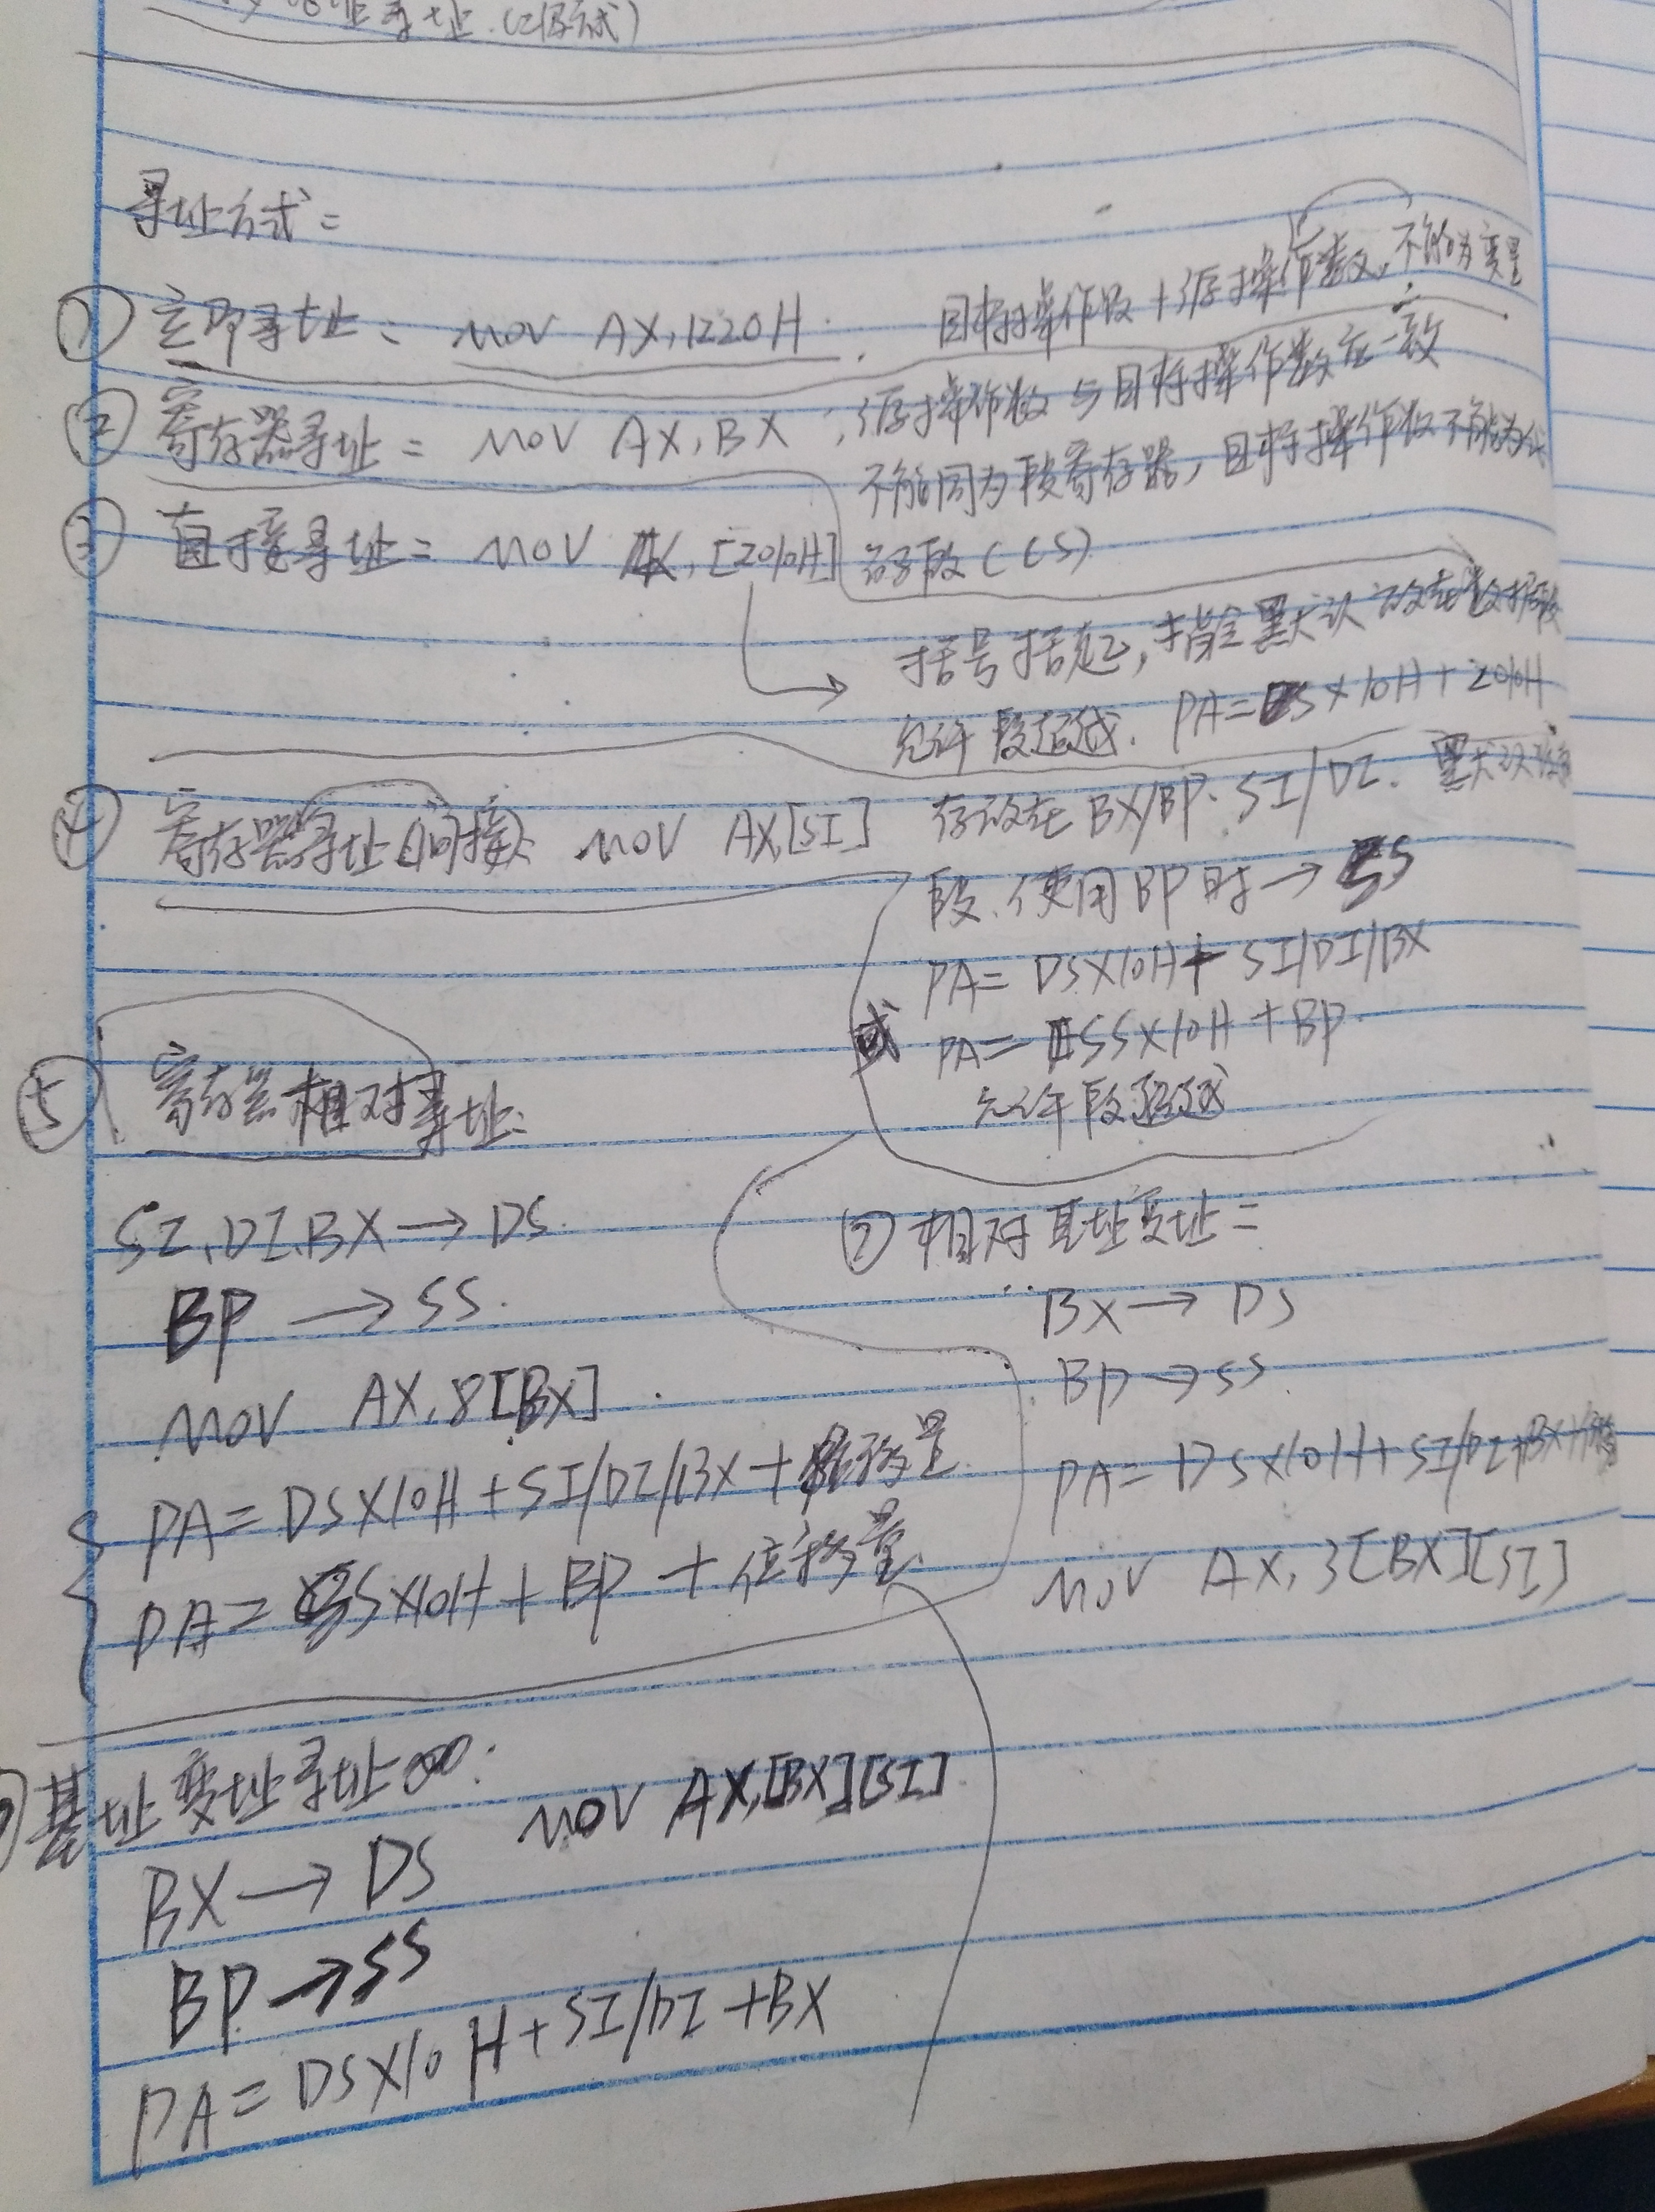 址寻址.(2种方式)
寻址方式:
① 立即寻址: MOV AX,1220H. 目标操作数+源操作数,不能为变量
② 寄存器寻址: MOV AX,BX ;源操作数与目标操作数应一致
不能同为段寄存器,目标操作数不能为代
码段(CS)
③ 直接寻址: MOV AX,[2010H]
括号括起,指令默认放在数据段
允许段超越. PA=DS×10H+2010H
④ 寄存器寻址(间接) MOV AX,[SI] 存放在BX/BP.SI/DI. 默认数据
段.使用BP时→SS
PA=DS×10H+SI/DI/BX
或 PA=SS×10H+BP
允许段超越
⑤ 寄存器相对寻址:
SI,DI,BX→DS.
BP→SS.
MOV AX,8[BX]
PA=DS×10H+SI/DI/BX+位移量
PA=SS×10H+BP+位移量
基址变址寻址: MOV AX,[BX][SI]
BX→DS
BP→SS
PA=DS×10H+SI/DI+BX
⑦ 相对基址变址:
BX→DS
BP→SS
PA=DS×10H+SI/DI+BX+
MOV AX,3[BX][SI]